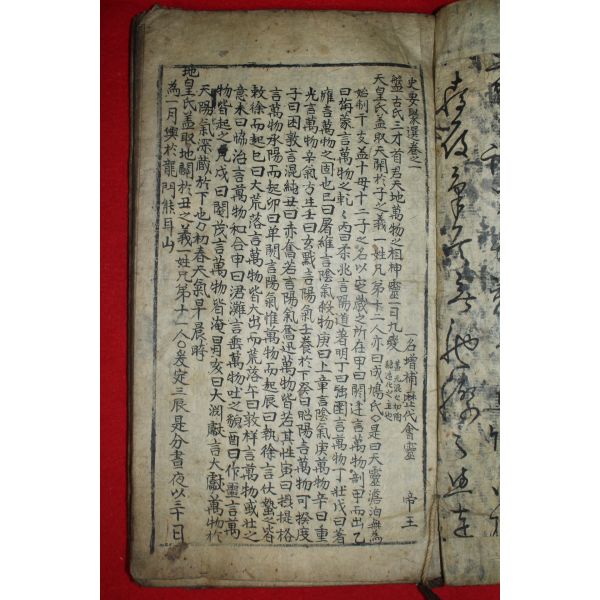 史要聚選卷之一
一名增補歷代會靈　帝王
盤古氏三才首君天地萬物之祖神靈一日九變
天皇氏盖取天開於子之義一姓兄弟十二人亦曰成鳩氏〇是曰天靈澹泊無爲
始制干支盖十母十二子之名以定歲之所在甲曰閼逢言萬物剖甲而出乙
曰旃蒙言萬物之軋〻丙曰柔兆言陽道著明丁曰强圉言萬物丁壯戊曰著
雍言萬物之固也己曰屠維言陰氣殺物庚曰上章言陰氣庚萬物辛曰重
光言萬物辛氣方生壬曰玄黓言陽氣壬養於下癸曰昭陽言萬物可揆度
子曰困敦言混純丑曰赤奮若言陽氣奮迅萬物皆若其性寅曰摂提格
言萬物承陽而起卯曰單閼言陽氣惟萬物而起辰曰執徐言伏蟄之者
敕徐而起巳曰大荒落言萬物皆大出而荒落午曰敦牂言萬物或壯之
意未曰協洽言萬物和合申曰涒灘言垂萬物吐之貌酉曰作噩言萬
物皆起之皃戌曰閹茂言萬物皆淹冒亥曰大淵獻言大獻萬物於
天陽氣深藏於下也〇初春天氣早晨時
地皇氏盖取地闢於丑之義一姓兄弟十一人〇爰定三辰是分晝夜以三十日
為一月興於龍門熊耳山